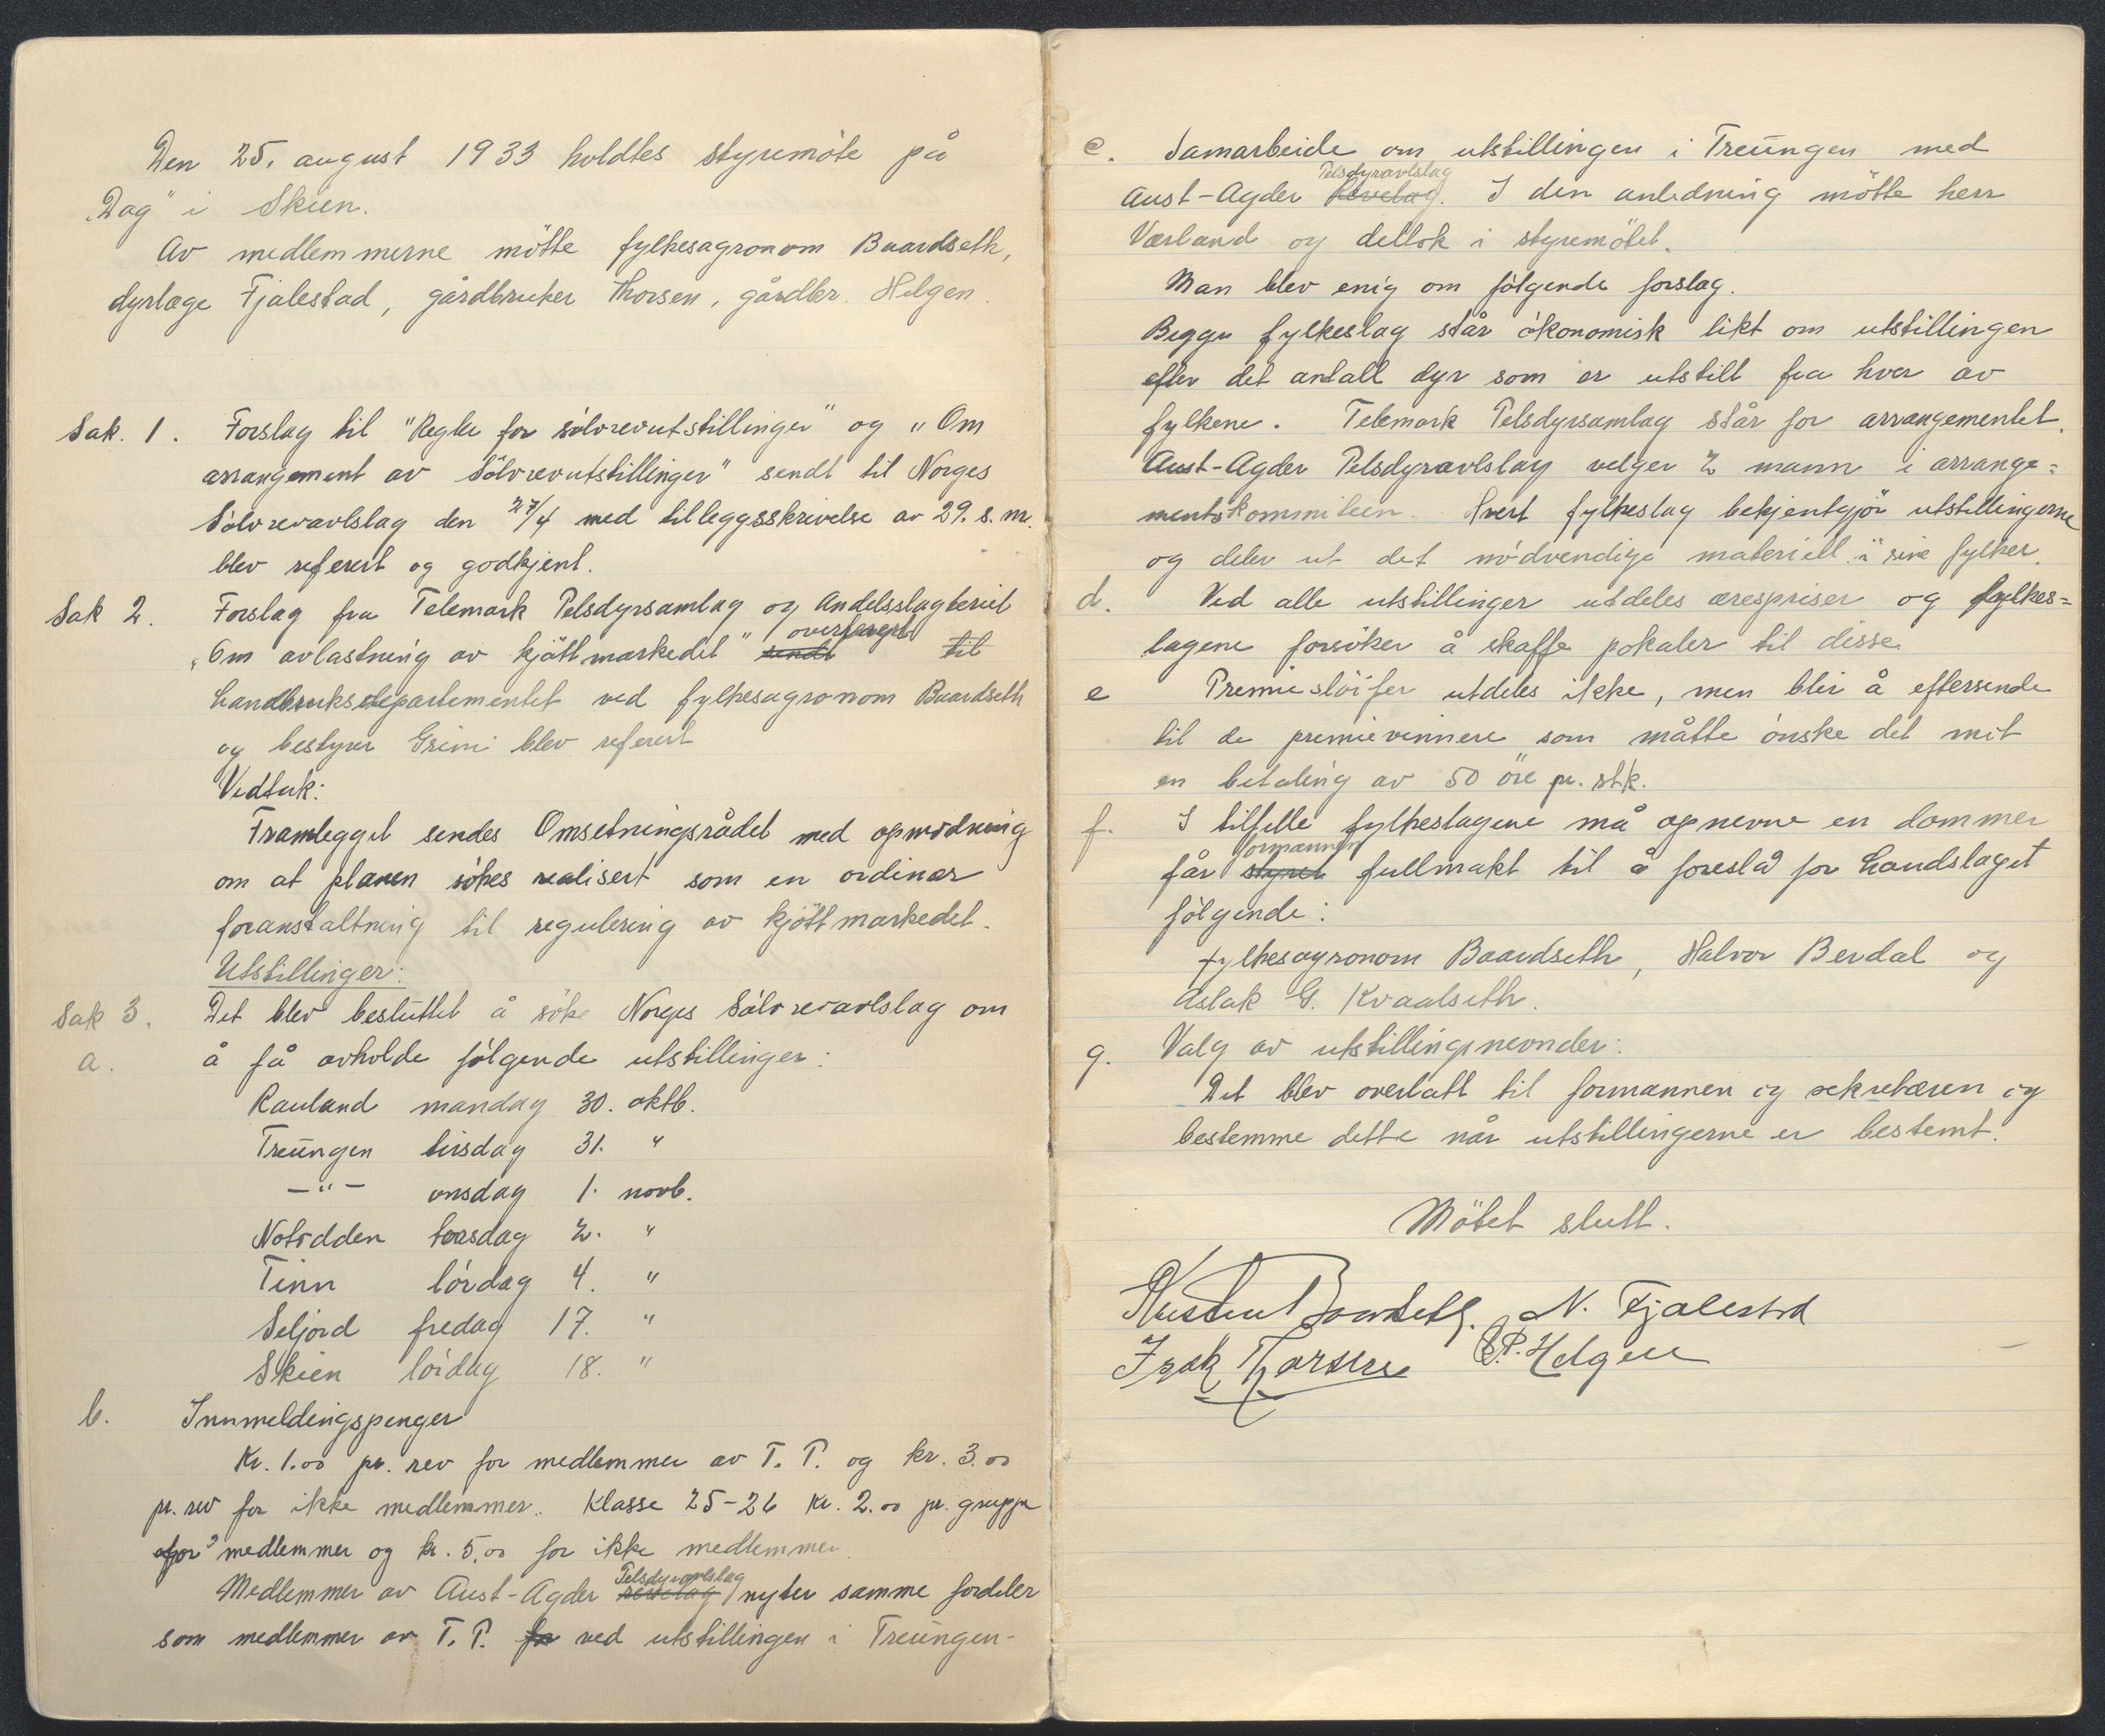 Den 25. august 1933 holdtes styremöte på
"Dag" i Skien.
Av medlemmerne mötte fylkesagronom Baardseth,
dyrlæge Fjalestad, gårdbruker Thorsen, gårdbr. Helgen.
Sak. 1. Forslag til "Regler for sölvrevutstillinger" og "Om
arrangement av Sölvrevutstillinger" sendt til Norges
Sölvrevavlslag den 27/4 med tilleggsskrivelse av 29. s. m.
blev referert og godkjent.
Sak 2. Forslag fra Telemark Pelsdyrsamlag og Andelsslagteriet
"Om avlastning av kjöttmarkedet" sendt til
Landbruksdepartementet ved fylkesagronom Baardseth
og bestyrer Grini blev referert
Vedtak:
Framlegget sendes Omsetningsrådet med opmodning
om at planen sökes realisert som en ordinær
foranstaltning til regulering av kjöttmarkedet.
Utstillinger:
Sak 3. Det blev besluttet å söke Norges Sölvrevavlslag om
a. å få avholde fölgende utstillinger:
Rauland mandag 30. oktb.
Treungen tirsdag 31. "
-"- onsdag 1. novb.
Notodden torsdag 2. "
Tinn lördag 4. "
Seljord fredag 17. "
Skien lördag 18. "
b. Innmeldingspenger
Kr. 1.00 pr. rev for medlemmer av T. P. og kr. 3.00
pr. rev for ikke medlemmer. Klasse 25-26 kr. 2.00 pr. gruppe
for medlemmer og kr. 5.00 for ikke medlemmer.
Pelsdyravlslag
Medlemmer av Aust-Agder revelag nyter samme fordeler
som medlemmer av T. P. for ved utstillingen i Treungen-
c. Samarbeide om utstillingen i Treungen med
Pelsdyravlslag
Aust-Agder Revelag. I den anledning mötte herr
Værland og deltok i styremötet.
Man blev enig om fölgende forslag.
Begge fylkeslag står ökonomisk likt om utstillingen
efter det antall dyr som er utstilt fra hver av
fylkene. Telemark Pelsdyrsamlag står for arrangementet.
Aust-Agder Pelsdyravlslag velger 2 mann i arrange=
mentskommiteen. Hvert fylkeslag bekjentgjör utstillingerne
og deler ut det nödvendige materiell i sine fylker.
d. Ved alle utstillinger utdeles ærespriser og fylkes=
lagene forsöker å skaffe pokaler til disse.
e Premieslöifer utdeles ikke, men blir å eftersende
til de premievinnere som måtte önske det mot
en betaling av 50 öre pr. stk.
f. I tilfelle fylkeslagene må opnevne en dommer
formannen
får styret fullmakt til å foreslå for Landslaget
fölgende:
fylkesagronom Baardseth, Halvor Berdal og
Aslak G. Kvaalseth.
g. Valg av utstillingsnevnder:
Det blev overlatt til formannen og sekretæren og
bestemme dette når utstillingerne er bestemt.
Mötet slutt.
Baardseth. N. Fjalestad
Isak Thorsen P. Helgen